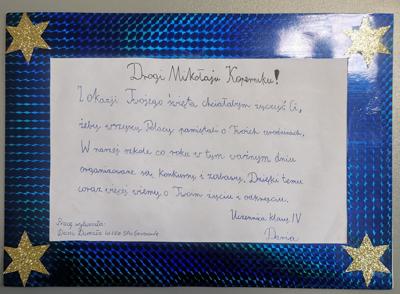 Drogi Mikołaju Koperniku!
Z okazji Twojego święta chciałabym życzyć Ci,
żeby wszyscy Polacy pamiętali o Twoich urodzinach.
W naszej szkole co roku w tym ważnym dniu
organizowane są konkursy i zabawy. Dzięki temu
coraz więcej wiemy o Twoim życiu i odkryciu.
Uczennica klasy IV
Daria
Pracę wykonała:
Daria